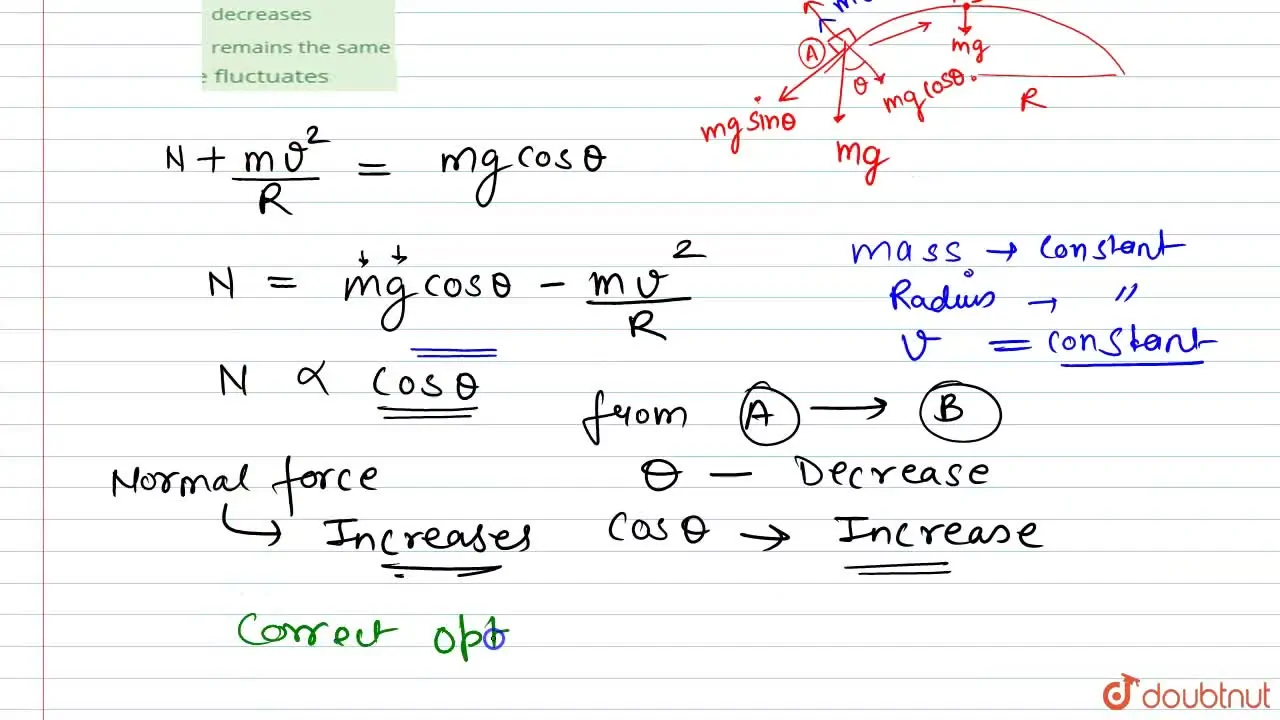 decreases
remains the same
e fluctuates
A
mg
θ
mg cosθ
R
mg sinθ
mg
N + mv²/R = mg cosθ
N = mg cosθ - mv²/R
mass → constant
Radius → "
v = constant
N ∝ cosθ
from A → B
Normal force
θ - Decrease
↳ Increases
cosθ → Increase
Correct opt
doubtnut